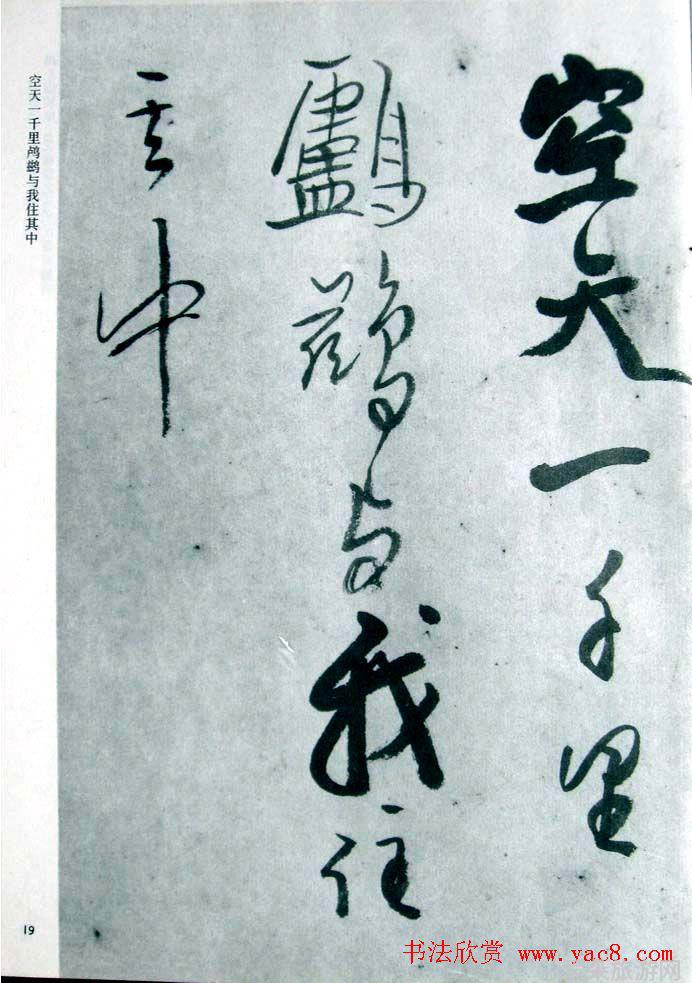 空天一千里
鸕鷀与我住
其中
空天一千里鸬鹚与我住其中
19
书法欣赏 www.yac8.com
旅游网